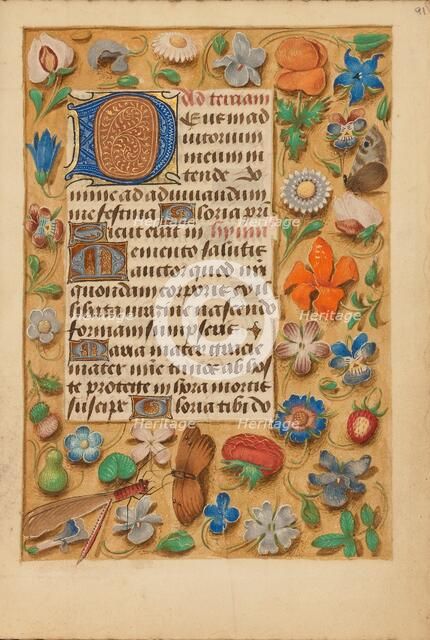 91
Ad tertiam
Deus in ad
iutorium
meum in
tende do
mine ad adiuuandum
me festina Gloria pri
Sicut erat in hÿmn
Memento salutis
auctor quod nri
quondam corporis ex il
libata uirgine nascendo
formam sumpseris
Maria mater gracie
mater mie tu nos ab hos
te protege in hora mortis
suscipe Gloria tibi do
Heritage
Heritage
Heritage
Heritage
Heritage
Heritage